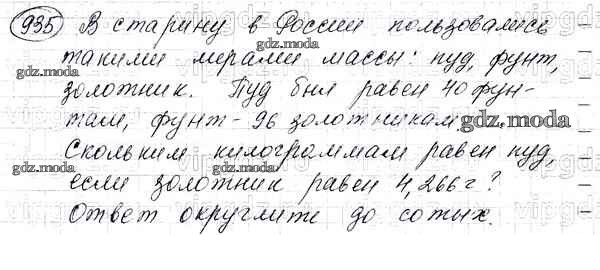 935 В старину в России пользовались
такими мерами массы: пуд, фунт,
золотник. Пуд был равен 40 фун-
там, фунт - 96 золотникам
Скольким килограммам равен пуд,
если золотник равен 4,266 г?
Ответ округлите до сотых.
gdz.moda
gdz.moda
gdz.moda
gdz.moda
gdz.moda